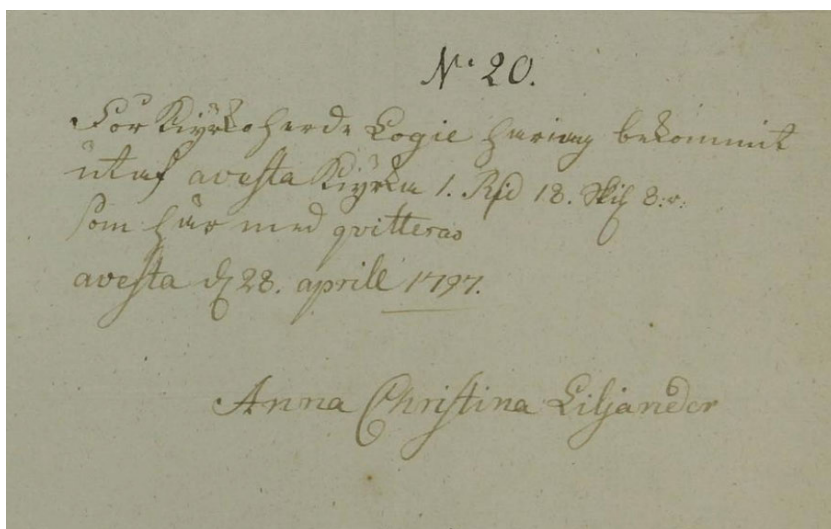 N:º 20.
För Kyrkoherde Logie haring bekommit
utaf avesta Kyrka 1. Rd 18. Sk 8: r:
som här med qvitteras
avesta d 28. aprill 1797.
Anna Christina Liljander